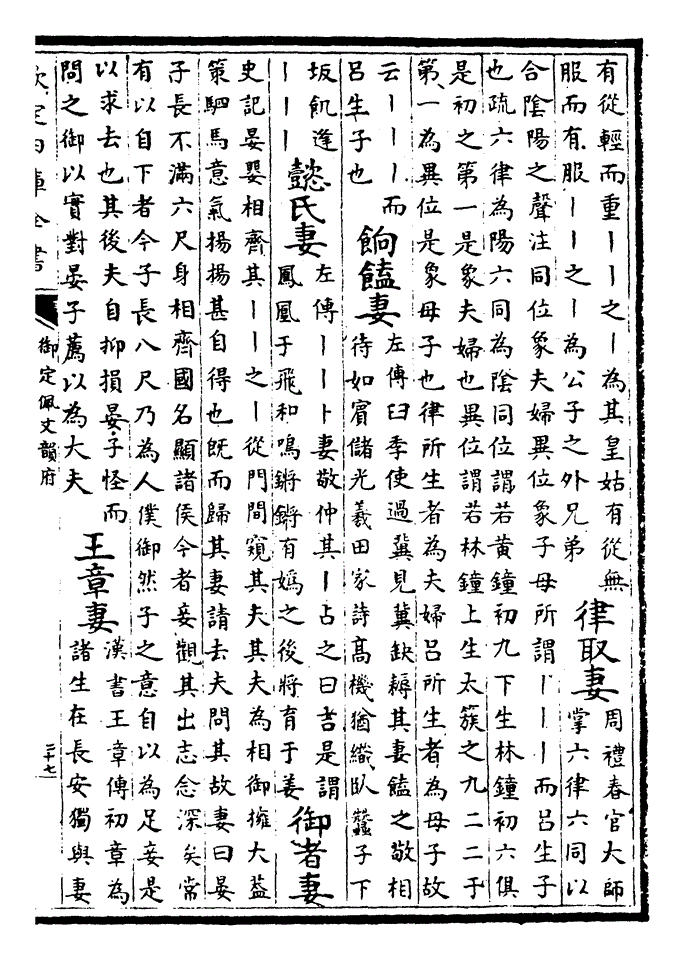 有從輕而重丨丨之丨為其皇姑有從無
服而有服丨丨之丨為公子之外兄弟
律取妻
周禮春官大師
掌六律六同以
合陰陽之聲注同位象夫婦異位象子母所謂丨丨丨而吕生子
也疏六律為陽六同為陰同位謂若黃鐘初九下生林鐘初六俱
是初之第一是象夫婦也異位謂若林鐘上生太簇之九二二于
第一為異位是象母子也律所生者為夫婦吕所生者為母子故
云丨丨丨而
吕生子也
餉饁妻
左傳臼季使過冀見冀缺耨其妻饁之敬相
待如賓儲光羲田家詩髙機猶織臥蠶子下
坂飢逢
丨丨丨
懿氏妻
左傳丨丨卜妻敬仲其丨占之曰吉是謂
鳳凰于飛和鳴鏘鏘有媯之後將育于姜
御者妻
史記晏嬰相齊其丨丨之丨從門間窺其夫其夫為相御擁大葢
策駟馬意氣揚揚甚自得也既而歸其妻請去夫問其故妻曰晏
子長不滿六尺身相齊國名顯諸侯今者妾觀其出志念深矣常
有以自下者今子長八尺乃為人僕御然子之意自以為足妾是
以求去也其後夫自抑損晏子怪而
問之御以實對晏子薦以為大夫
王章妻
漢書王章傳初章為
諸生在長安獨與妻
欽定四庫全書
御定佩文韻府
二十七